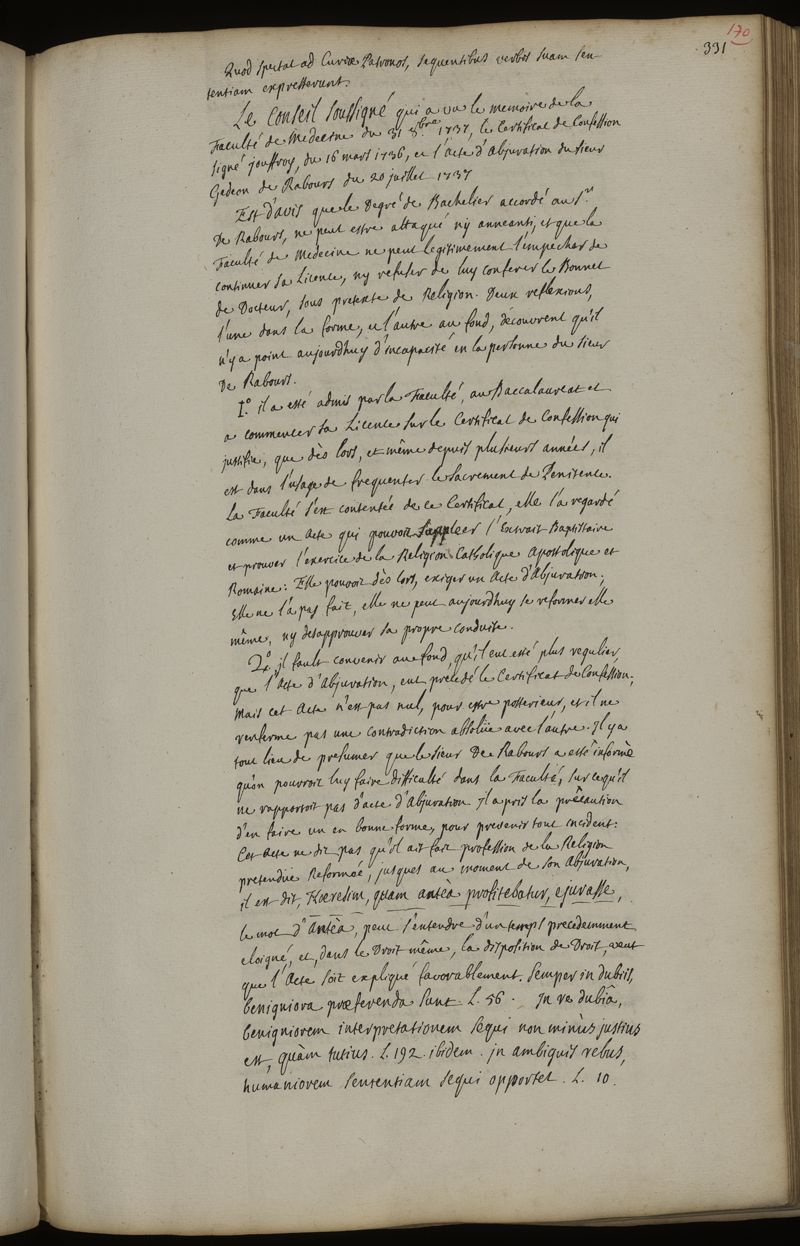 170
331
Quod spectat ad Curiæ Patronos, sequentibus verbis suam sen-
tentiam expresserunt.
Le Conseil soussigné qui a vu le memoire de la
Faculté de Medecine du 31 8.bre 1737, le Certificat de Confession
signé jouffroy, du 16 mars 1736, et l'acte d'Abjuration du sieur
Gedeon de Rabours du 20 juillet 1737
Est d'avis que le Degré de Bachelier accordé au S.r
De Rabours, ne peut estre attaqué ny anneanti, et que la
Faculté de Medecine ne peut legitimement l'empecher de
continuer sa Licence, ny refuser de luy conferer le Bonnet
de Docteur, sous pretexte de Religion. Deux reflexions,
l'une dans la forme, et l'autre au fond, découvrent qu'il
n'y a point aujourdhuy d'incapacité en la personne du sieur
De Rabours.
1.o il a esté admis par la Faculté, au Baccalaureat et
a commencer sa Licence sur le Certificat de Confession qui
justifie, que dès lors, et même depuis plusieurs années, il
est dans l'usage de frequenter le Sacrement de Penitence.
La Faculté s'est contentée de ce Certificat, elle l'a regardé
comme un Acte qui pouvoit suppléer l'Extrait Baptistaire
et prouver l'exercice de la Religion Catholique Apostolique et
Romaine: Elle pouvoit dès lors, exiger un Acte d'Abjuration;
Elle ne l'a pas fait, elle ne peut aujourdhuy se reformer elle
même, ny desapprouver sa propre conduite.
2.o jl fault convenir au fond, qu'il eut esté plus regulier,
que l'Acte d'Abjuration, eut precedé le Certificat de Confession;
Mais cet Acte n'est pas nul, pour estre posterieur, et il ne
renferme pas une contradiction absolüe avec l'autre. Jl y a
tout lieu de presumer que le sieur De Rabours a esté informé
qu'on pourroit luy faire difficulté dans la Faculté, sur ce qu'il
ne rapportoit pas d'acte d'Abjuration Jl a pris la précaution
d'en faire un en bonne forme, pour prevenir tout incident:
Cet Acte ne dit pas qu'il ait fait profession de la Religion
pretendüe Reformée, jusques au moment de son Abjuration,
il est dit, Hæresim, quam anteà profitebatur, ejurasse,
le mot d'Anteà, peut s'entendre d'un temps precedemment
eloigné, et, dans le Droit même, la disposition de Droit, veut
que l'Acte soit expliqué favorablement. Semper in dubiis,
benigniora præferenda sunt. L. 56. Jn re dubiâ,
benigniorem interpretationem sequi non minùs justius
est, quàm tutius. L. 192. ibidem. jn ambiguis rebus,
humaniorem sententiam sequi opportet. L. 10.